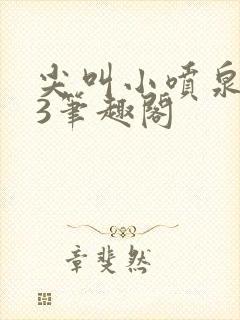 尖叫小喷泉
3笔趣阁
章斐然